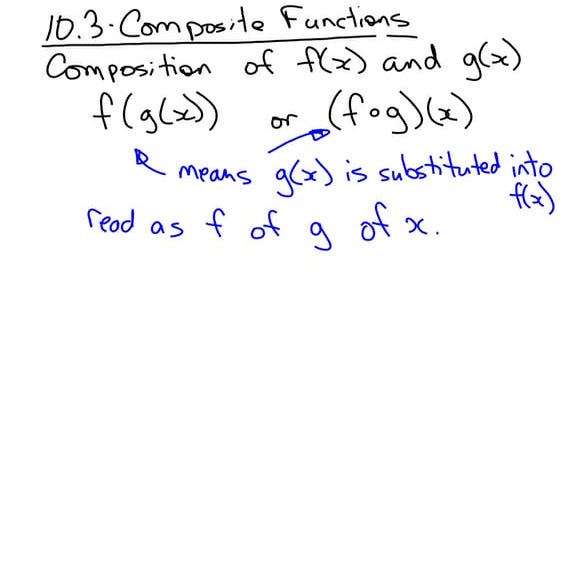 10.3. Composite Functions
Composition of f(x) and g(x)
f(g(x)) or (f∘g)(x)
means g(x) is substituted into
f(x)
read as f of g of x.